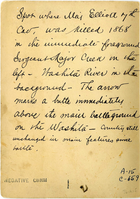 Spot where Maj. Elliott of the
Cav, was killed 1868
in the immediate foreground
Sergeant-Major Creek on the
left - Washita River in the
background - The arrow
marks a butte immediately
above the main battleground
on the Washita - Country still
unchanged in main features since
battle.
A-15
C-559